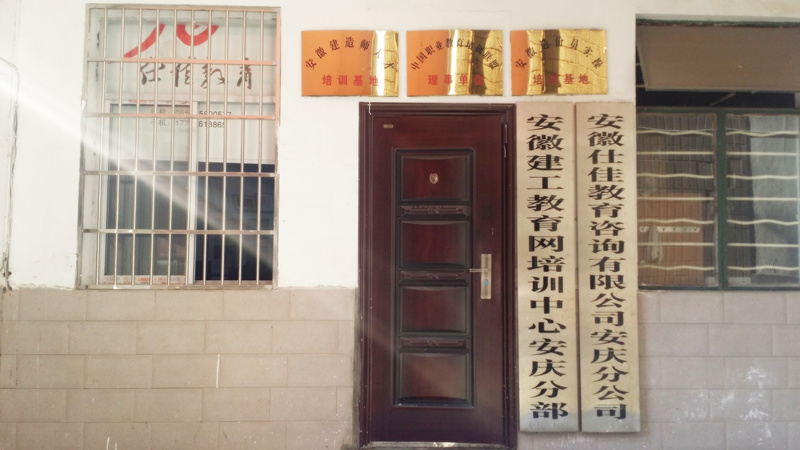 仕佳教育
安徽建造师人才
培训基地
中国职业教育培训联盟
理事单位
培训基地
安徽建工教育网培训中心安庆分部
安徽仕佳教育咨询有限公司安庆分公司